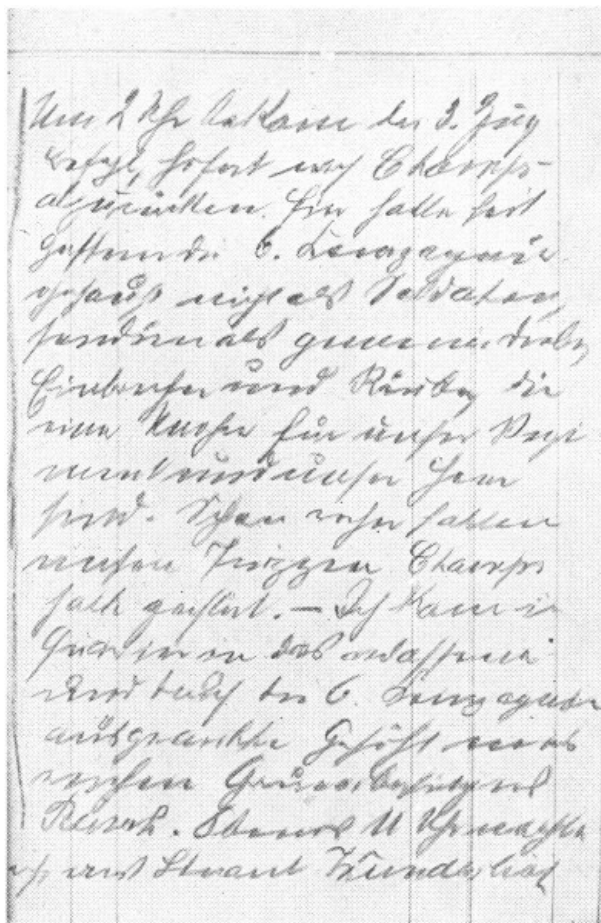 Um 2 Uhr bekam der 3. Zug
Befehl, sofort nach Champs
abzurücken. Hier hatte seit
gestern die 6. Compagnie
gehaust nicht als Soldaten,
sondern als gemeine Diebe,
Einbrecher und Räuber, die
eine Unehre für unser Regi
ment und unser Heer
sind. Schon vorher hatten
unsere Truppen Champs
halb zerstört. — Ich kam in
Quartier in das verlassene
und durch die 6. Compagnie
ausgeraubte Gehöft eines
reichen Grundbesitzers
Abends 11 Uhr